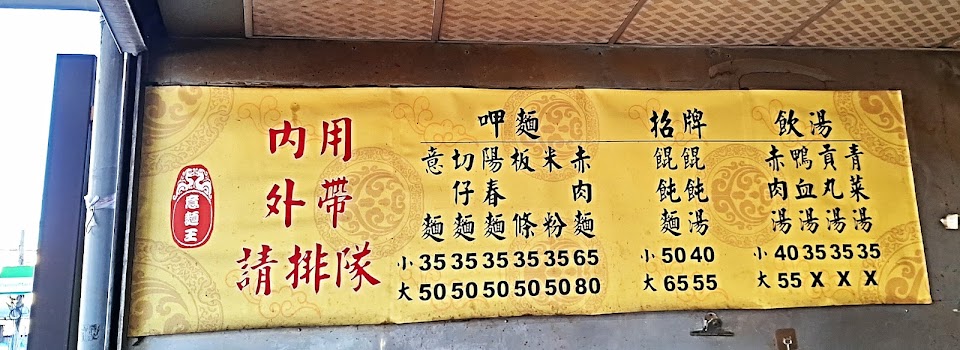 內用
外帶
請排隊
意麵王
呷麵
意麵
切仔麵
陽春麵
板條
米粉
赤肉麵
小 35 35 35 35 35 65
大 50 50 50 50 50 80
招牌
餛飩麵
餛飩湯
小 50 40
大 65 55
飲湯
赤肉湯
鴨血湯
貢丸湯
青菜湯
小 40 35 35 35
大 55 X X X